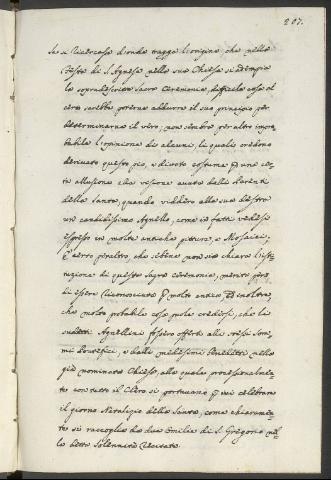 207.
Se si ricercasse donde tragga l'origine, che nella
Festa di S. Agnese nella sua Chiesa si adempia
la sopradescritta Sacra Ceremonia, difficile cosa al
certo sarebbe potersi addurre il suo principio per
determinarne il vero; non sembra per altro impro
babile l'opinione di alcuni, li quali credono
derivato questo pio, e divoto costume p una cer
ta allusione alla visione avuta dalli Parenti
della Santa, quando viddero alla sua destra
un candidissimo Agnello, come in fatti vedesi
espresso in molte antiche pitture, e Mosaici;
È certo peraltro, che sebene non sia chiara l'isti
tuzione di questa sagra ceremonia, merita però
di essere riconosciuta p molto antica. Ed inoltre,
che molto probabile cosa puole credersi, che li
sudetti Agnellini fossero offerti alli stessi Som
mi Pontefici, e dalli medesimi benedetti nella
già nominata Chiesa, alla quale processionalmen
te con tutto il Clero si portavano p ivi celebrare
il giorno Natalizio della Santa, come chiaramen
te si raccoglie da due Omilie di S. Gregorio nel
la detta Solennità recitate.